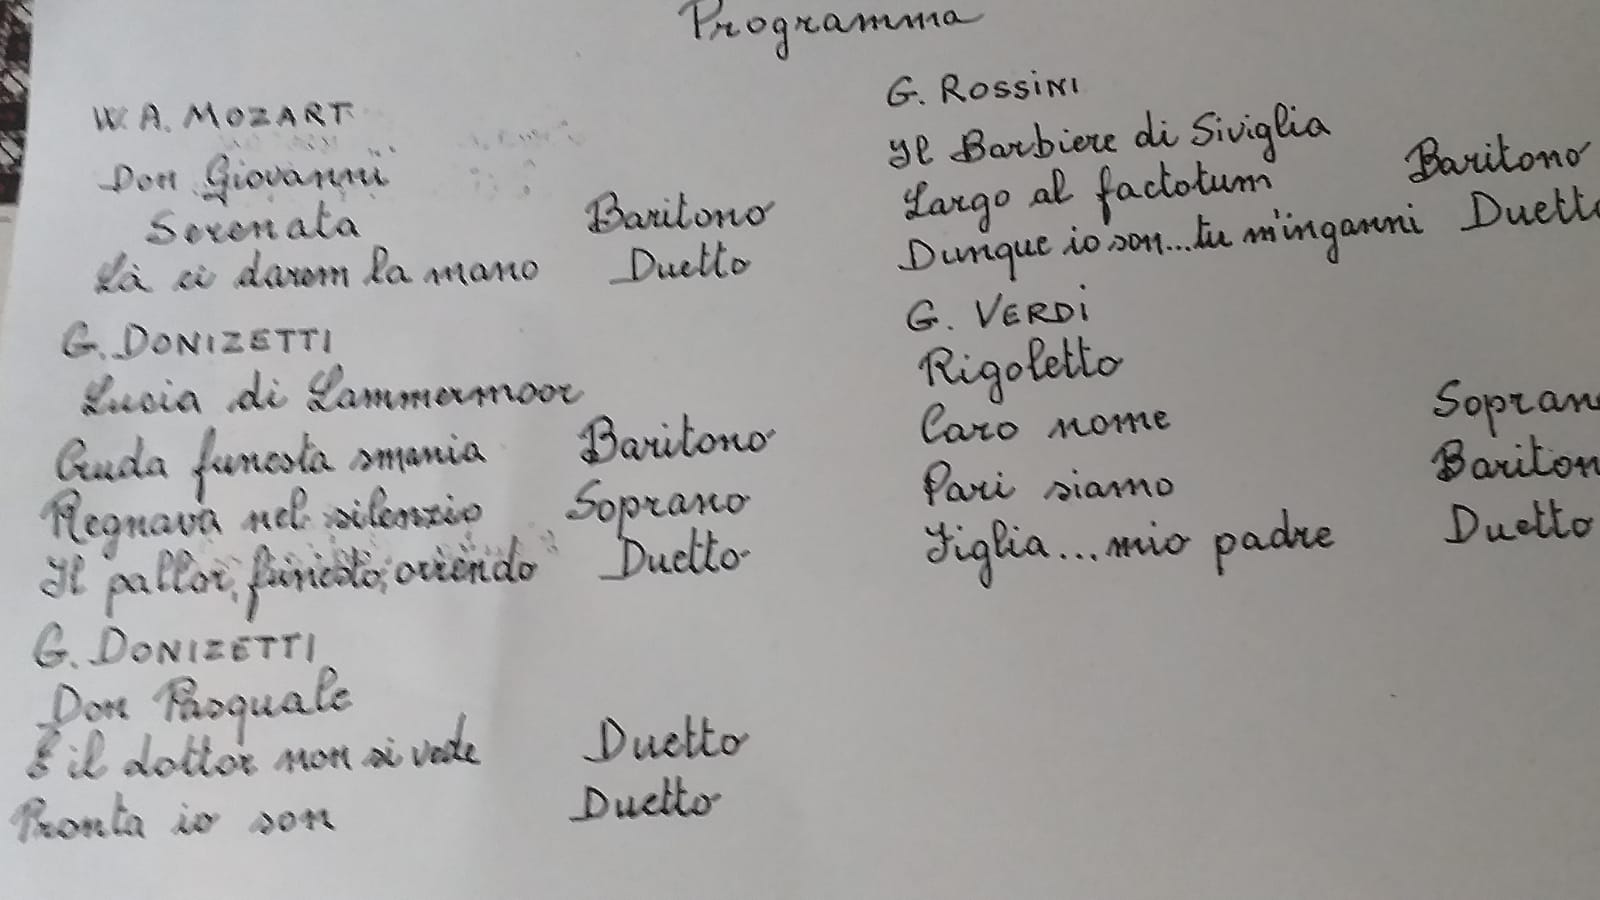 Programma
W. A. MOZART
Don Giovanni
Serenata Baritono
Là ci darem la mano Duetto
G. DONIZETTI
Lucia di Lammermoor
Cruda funesta smania Baritono
Regnava nel silenzio Soprano
Il pallor, funesto, orrendo Duetto
G. DONIZETTI
Don Pasquale
E il dottor non si vede Duetto
Pronta io son Duetto
G. ROSSINI
Il Barbiere di Siviglia
Largo al factotum Baritono
Dunque io son...tu m'inganni Duetto
G. VERDI
Rigoletto
Caro nome Sopran
Pari siamo Bariton
Figlia...mio padre Duetto